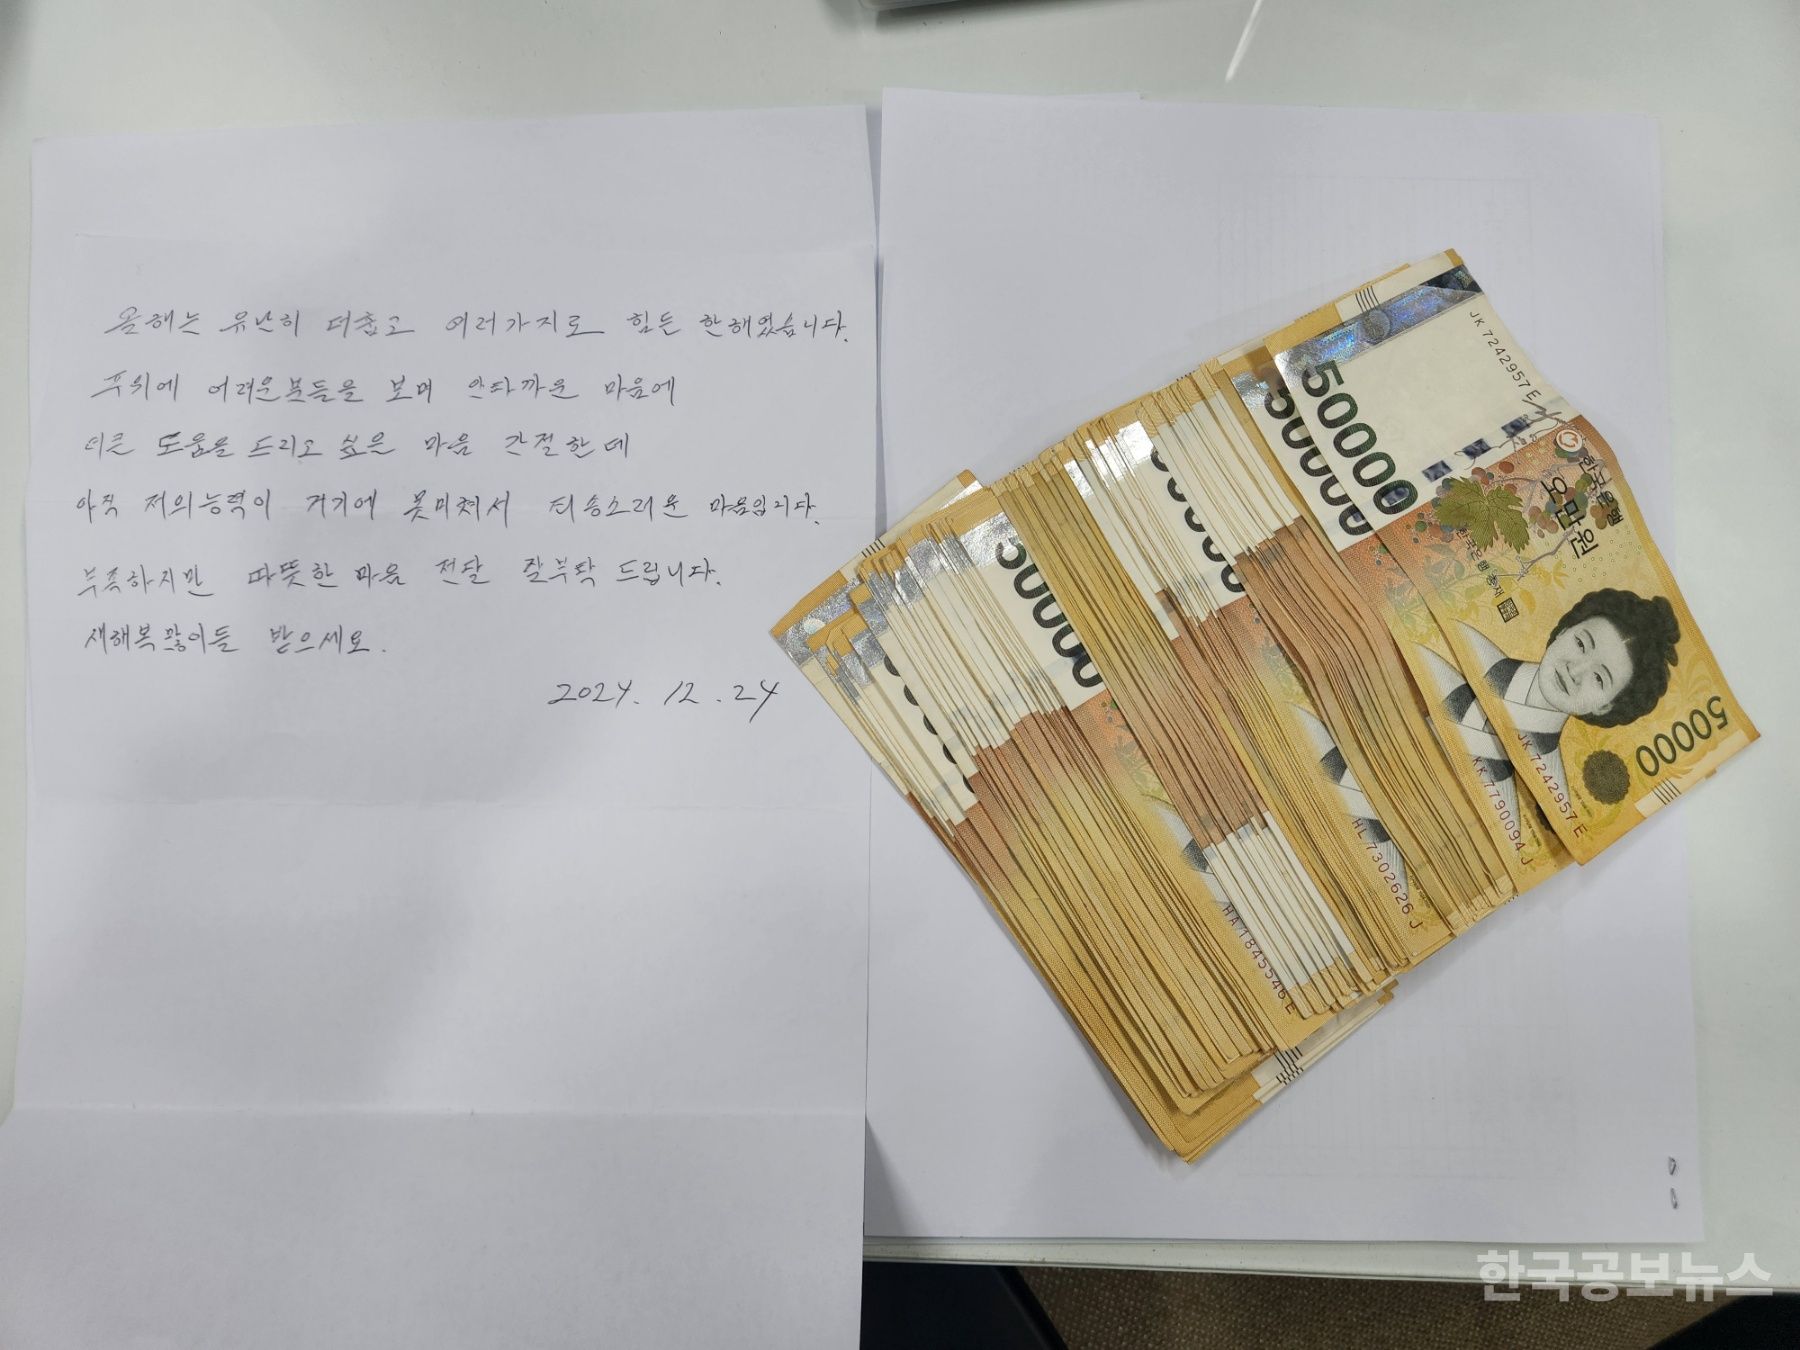 올해는 유난히 더춥고 여러가지로 힘든 한해였습니다.
주위에 어려운분들을 보며 안타까운 마음에
더큰 도움을 드리고 싶은 마음 간절한데
아직 저의능력이 거기에 못미쳐서 죄송스러운 마음입니다.
부족하지만 따뜻한 마음 전달 잘부탁 드립니다.
새해복많이들 받으세요.
2024. 12. 24
50000
JK 7242957 E
한국은행
오만원
한국은행 총재
50000
JK 7242957 E
50000
KK 7790094 J
HL 7302626 J
50000
HA 1845546 E
한국공보뉴스